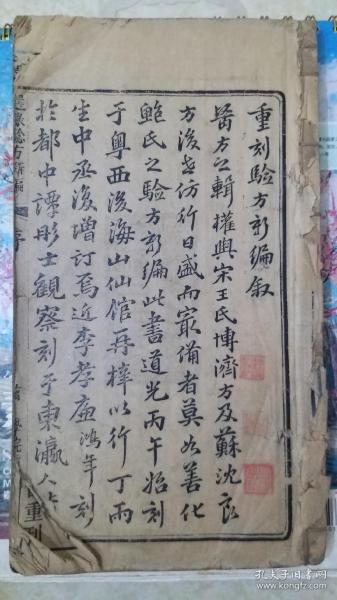 重刻驗方新編叙
醫方之輯權輿宋王氏博濟方及蘇沈良
方後世仿行日盛而最備者莫如善化
鮑氏之驗方新編此書道光丙午始刻
于粤西後海山仙館再梓以行丁雨
生中丞復增訂焉近李孝廉鴻年刻
於都中譚彤士觀察刻于東瀛人人
選錄驗方新編 序
重刊
孔夫子旧书网